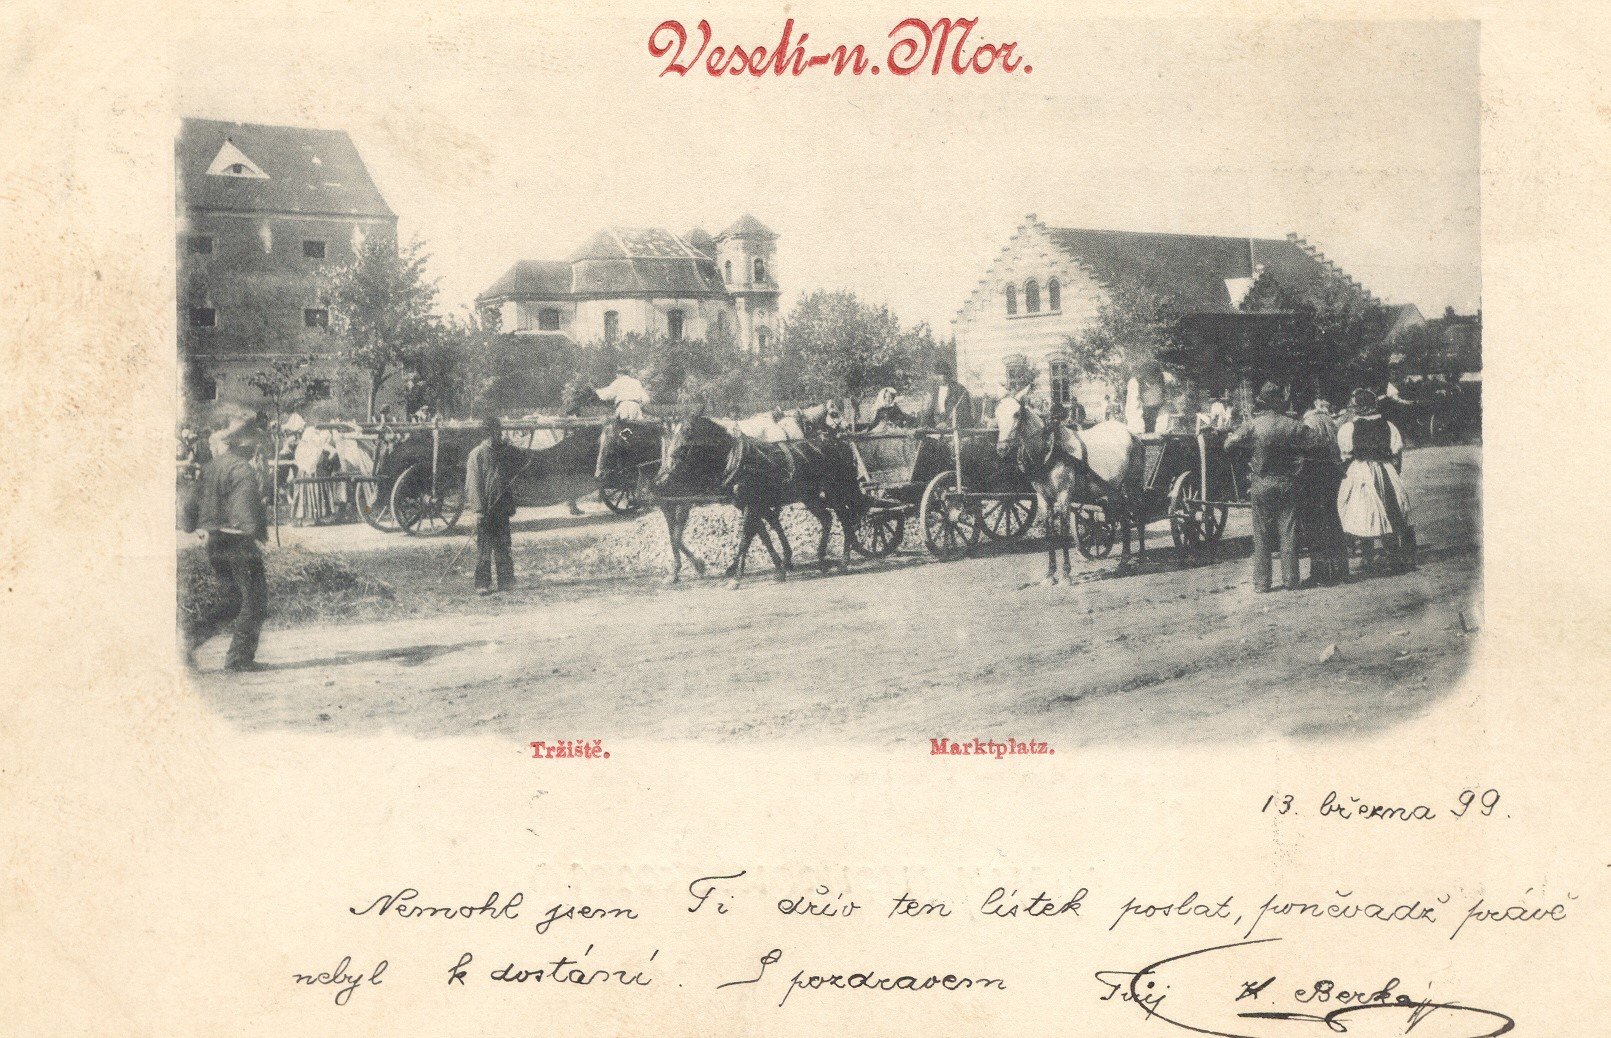 Veselí-n. Mor.
Tržiště.
Marktplatz.
13. března 99.
Nemohl jsem Ti dřív ten lístek poslat, poněvadž právě
nebyl k dostání. S pozdravem Tvůj